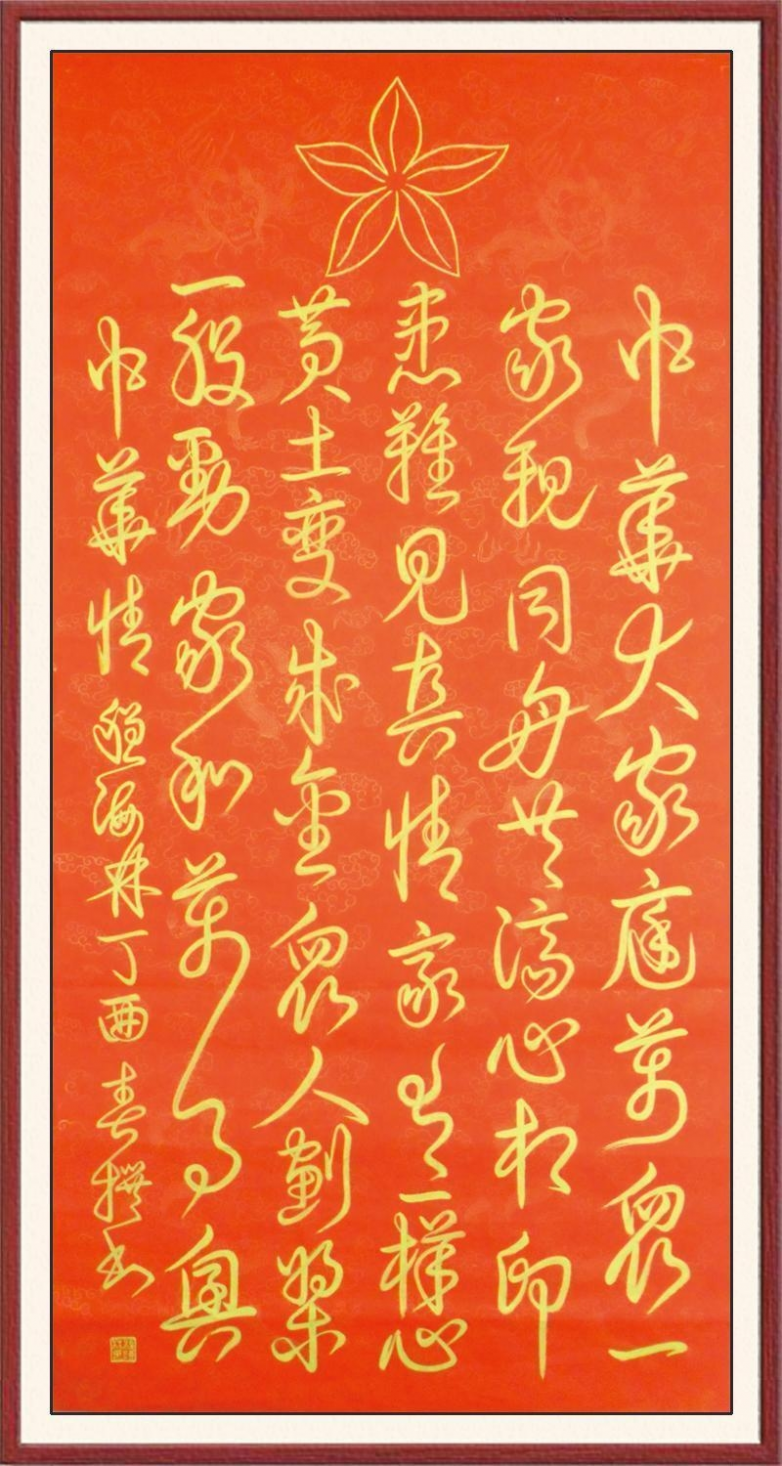 中華大家庭萬眾一
家親同舟共濟心相印
患難見真情家一樣心
黃土变成金眾人劃槳
一般勁家和萬事興
中華情海林丁酉春撰书